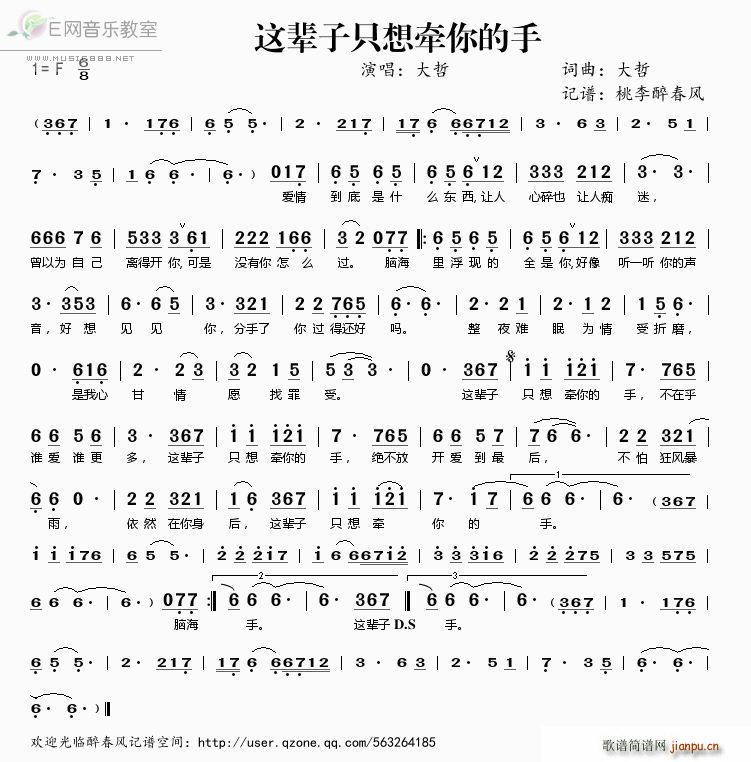 E网音乐教室
WWW.MUSIC888.NET
这辈子只想牵你的手
1=F 6/8 演唱：大哲 词曲：大哲
记谱：桃李醉春风
(367 | 1· 176 | 6 5 5· | 2· 217 | 176 66712 | 3· 63 | 2· 51 |
7· 35 | 166· | 6·) 017 | 65 65 | 65 612 | 333 212 | 3· 3· |
爱情 到底是什 么东西,让人 心碎也 让人痴 迷,
666 76 | 533 361 | 222 166 | 32 077 |: 65 65 | 65 612 | 333 212 |
曾以为自己 离得开你,可是 没有你怎么 过。 脑海 里浮现的 全是你,好像 听一听你的声
3· 353 | 6· 65 | 3· 321 | 22 765 | 6· 6· | 2· 23 | 2· 12 | 1 56· |
音,好想 见见 你,分手了 你过得还好 吗。 整夜难 眠为情 受折磨,
0· 616 | 2· 23 | 32 15 | 53 3· | 0· 367 | 11 121 | 7· 765 |
是我心 甘情 愿找罪 受。 这辈子 只想牵你的 手,不在乎
66 56 | 3· 367 | 11 121 | 7· 765 | 66 57 | 766· | 22 321 |
谁爱谁更 多,这辈子 只想牵你的 手,绝不放 开爱到最 后, 不怕狂风暴
66 0· | 22 321 | 16 367 | 11 121 | 7· 17 | 666· | 6· (367 |
雨, 依然在你身 后,这辈子 只想牵 你的 手。
1 1176 | 6 5 5· | 2 2217 | 1 6 66712 | 3 3316 | 2 2275 | 3 3575 |
6 6 6· | 6·) 077 :| 666· | 6· 367 || 666· | 6· (367 | 1· 176 |
脑海 手。 这辈子 D.S 手。
6 5 5· | 2· 217 | 176 66712 | 3· 63 | 2· 51 | 7· 35 | 5· 6· | 6· 6· |
6· 6·) ||
欢迎光临醉春风记谱空间：http://user.qzone.qq.com/563264185
歌谱简谱网 jianpu.cn